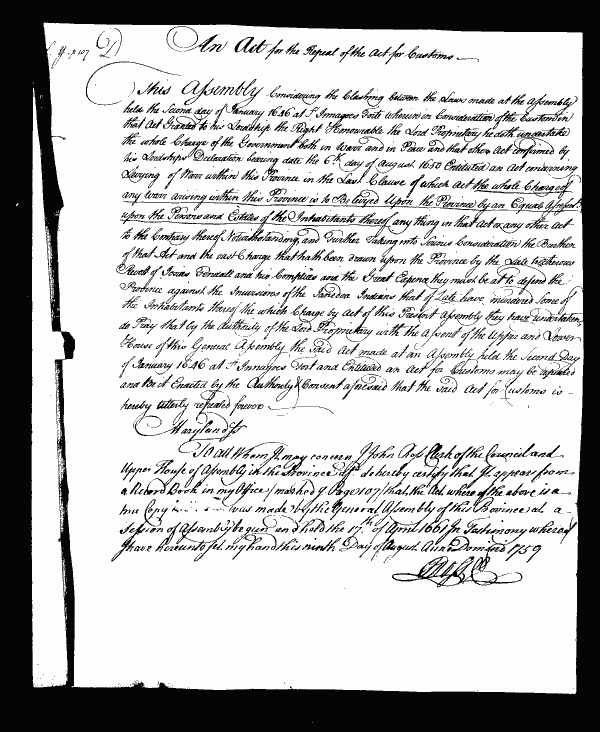 y. p 107 D
An Act for the Repeal of the Act for Customs
This Assembly Considering the Clashing between the Laws made at the Assembly
held the Second day of January 1646 at St Innagoes Forte wherein in Consideration of the Customs in
that Act Granted to his Lordship the Right Honourable the Lord Proprietary he doth undertake
the whole Charge of the Government both in Warr and in Peace and that then Act confirmed by
his Lordships Declaration bearing date the 6th day of August 1650 Entituled an Act concerning
Levying of Warr within this Province in the Last Clause of which Act the whole Charge of
any Warr arising within this Province is to Be Levyed Upon the Province by an Equall Assessmt
upon the Persons and Estates of the Inhabitants thereof any thing in that Act or any other act
to the Contrary thereof Notwithstanding, and Further Taking into Serious Consideration the Burthen
of that Act and the vast Charge that hath been drawn upon the Province by the Late Treacherous
Revolt of Josias Fendall and his Complices and the Great Expence they must be at to defend the
Province against the Incursions of the Indians that of Late have invaded some of
the Inhabitants thereof the which Charge by Act of this Present Assembly they have undertaken,
do Pray that by the Authority of the Lord Proprietary with the Assent of the Upper and Lower
House of this General Assembly the Said Act made at an Assembly held the Second Day
of January 1646 at St Innagoes Fort and Entituled an Act for Customs may be repealed
and Be it Enacted by the Authority & Consent aforesaid that the Said Act for Customs is
hereby utterly repealed forever
Maryland ss
To all Whom It may concern I John Ross Clerk of the Council and
Upper House of Assembly in the Province afsd do hereby certify that It appears from
a Record Book in my Office (marked Page 107) that the Act where of the above is a
true Copy was made by the General Assembly of this Province at a
Session of Assembly begun and held the 17th of April 1661 In Testimony whereof
I have hereunto set my hand this ninth Day of August Anno Domini 1759